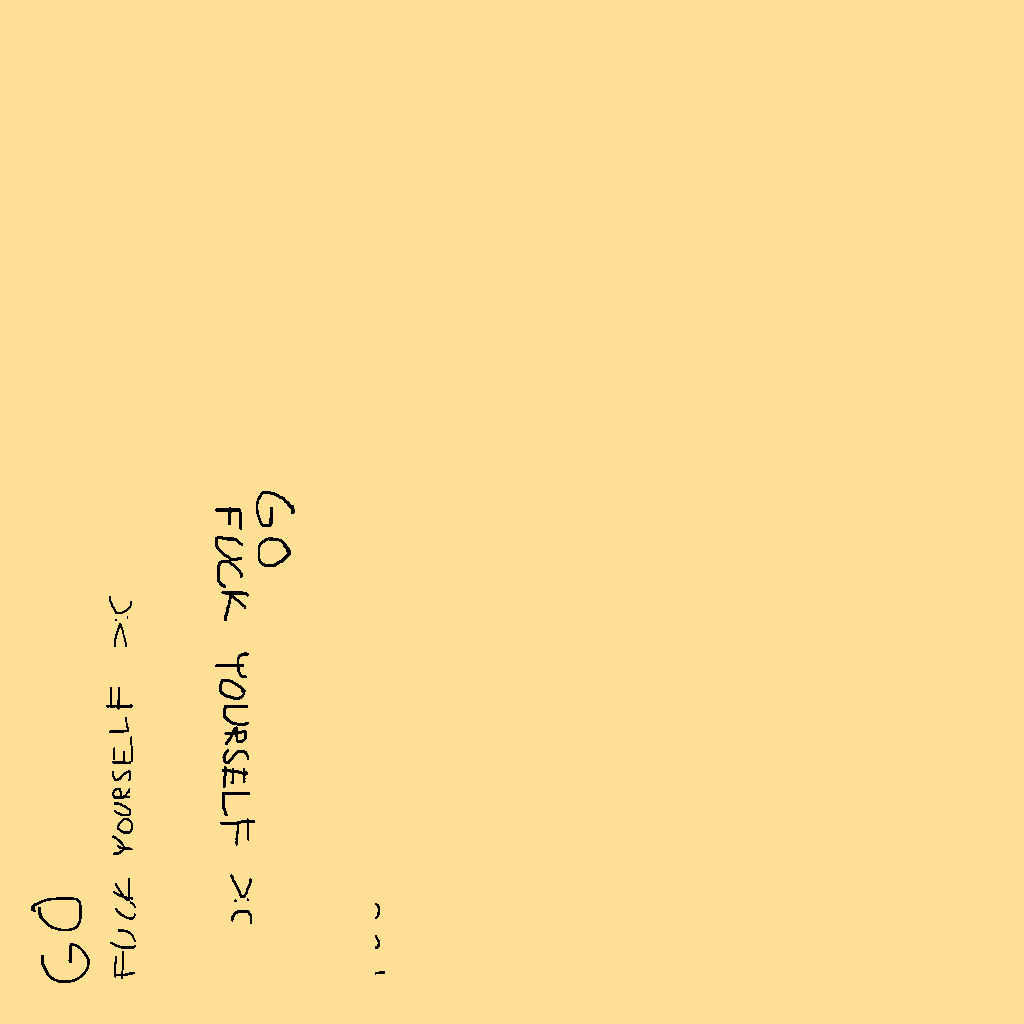 GO
FUCK YOURSELF >:(
GO
FUCK YOURSELF >:(